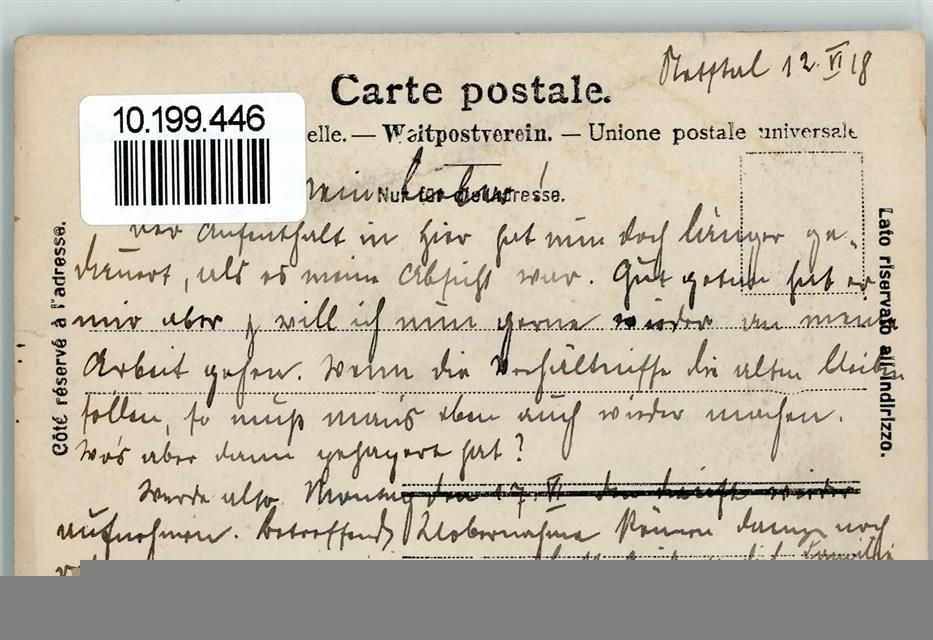 Netstal 12. VI 18
Carte postale.
10.199.446
elle. — Weltpostverein. — Unione postale universale
Nur für die Adresse.
Mein Lieber!
Der Aufenthalt in hier hat nun doch länger ge-
dauert, als es meine Absicht war. Gut getan hat er
mir aber & will ich nun gerne wieder an meine
Arbeit gehen. Wenn die Verhältnisse die alten bleiben
sollen, so muß man's eben auch wieder machen.
Wo's aber dann gehapert hat?
Werde also Montag den 17. VI den Dienst wieder
aufnehmen. Betreffend Uebernahme können dann noch
Familie
Côté réservé à l'adresse.
Lato riservato all'indirizzo.